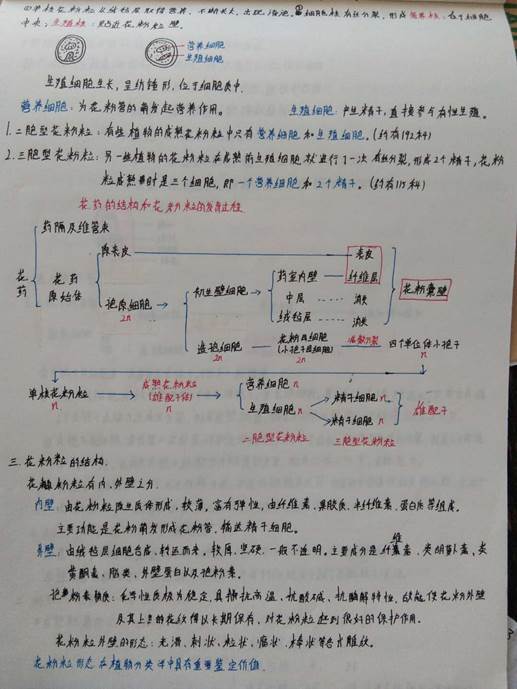 ①单核花粉粒从绒毡层取得营养,不断长大,出现液泡。②细胞核有丝分裂,形成营养核:位于细胞
中央;生殖核:贴近花粉粒壁。
营养细胞
生殖细胞
生殖细胞生长,呈纺锤形,位于细胞质中.
营养细胞:为花粉管的萌发起营养作用。 生殖细胞:产生精子,直接参与有性生殖。
1.二胞型花粉粒:有些植物的成熟花粉粒中只有营养细胞和生殖细胞。(约有192科)
2.三胞型花粉粒:另一些植物的花粉粒在成熟前生殖细胞就进行了一次有丝分裂,形成2个精子,花粉
粒成熟时是三个细胞,即一个营养细胞和2个精子。(约有115科)
花药的结构和花粉粒的发育过程
药隔及维管束
原表皮 表皮
花药 花药原始体 药室内壁 纤维层
孢原细胞 2n 初生壁细胞 中层 消失 花粉囊壁
绒毡层 消失
造孢细胞 2n 花粉母细胞(小孢子母细胞) 2n 减数分裂 四个单倍体小孢子 n
单核花粉粒 n 成熟花粉粒(雄配子体) n 营养细胞 n
生殖细胞 n 精子细胞 n 精子细胞 n 雄配子
二胞型花粉粒 三胞型花粉粒
三.花粉粒的结构.
花粉粒有内、外壁之分.
内壁:由花粉粒原生质体形成,较薄,富有弹性,由纤维素、果胶质、半纤维素、蛋白质等组成。
主要功能是花粉萌发形成花粉管、输送精子细胞。
外壁:由绒毡层细胞合成、转运而来。较厚、坚硬,一般不透明。主要成分是纤维素、类胡萝卜素、类
黄酮素、脂类、外壁蛋白以及孢粉素。
孢粉素物质:化学性质极为稳定,具循抗高温、抗酸碱、抗酶解特性,故能使花粉外壁
及其上的花纹得以长期保存,对花粉粒起到很好的保护作用。
花粉粒外壁的形态:光滑、刺状、粒状、瘤状、棒状等各式雕纹。
花粉粒形态在植物分类中具有重要鉴定价值.